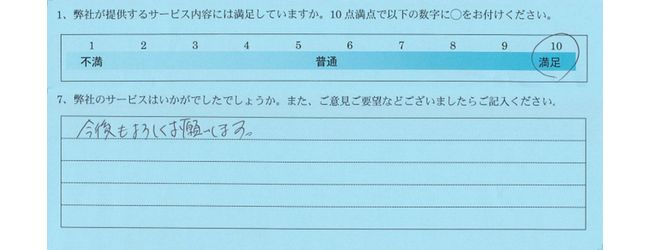 1、弊社が提供するサービス内容には満足していますか。10点満点で以下の数字に○をお付けください。
1 2 3 4 5 6 7 8 9 10
不満 普通 満足
7、弊社のサービスはいかがでしたでしょうか。また、ご意見ご要望などございましたらご記入ください。
今後もよろしくお願いします。